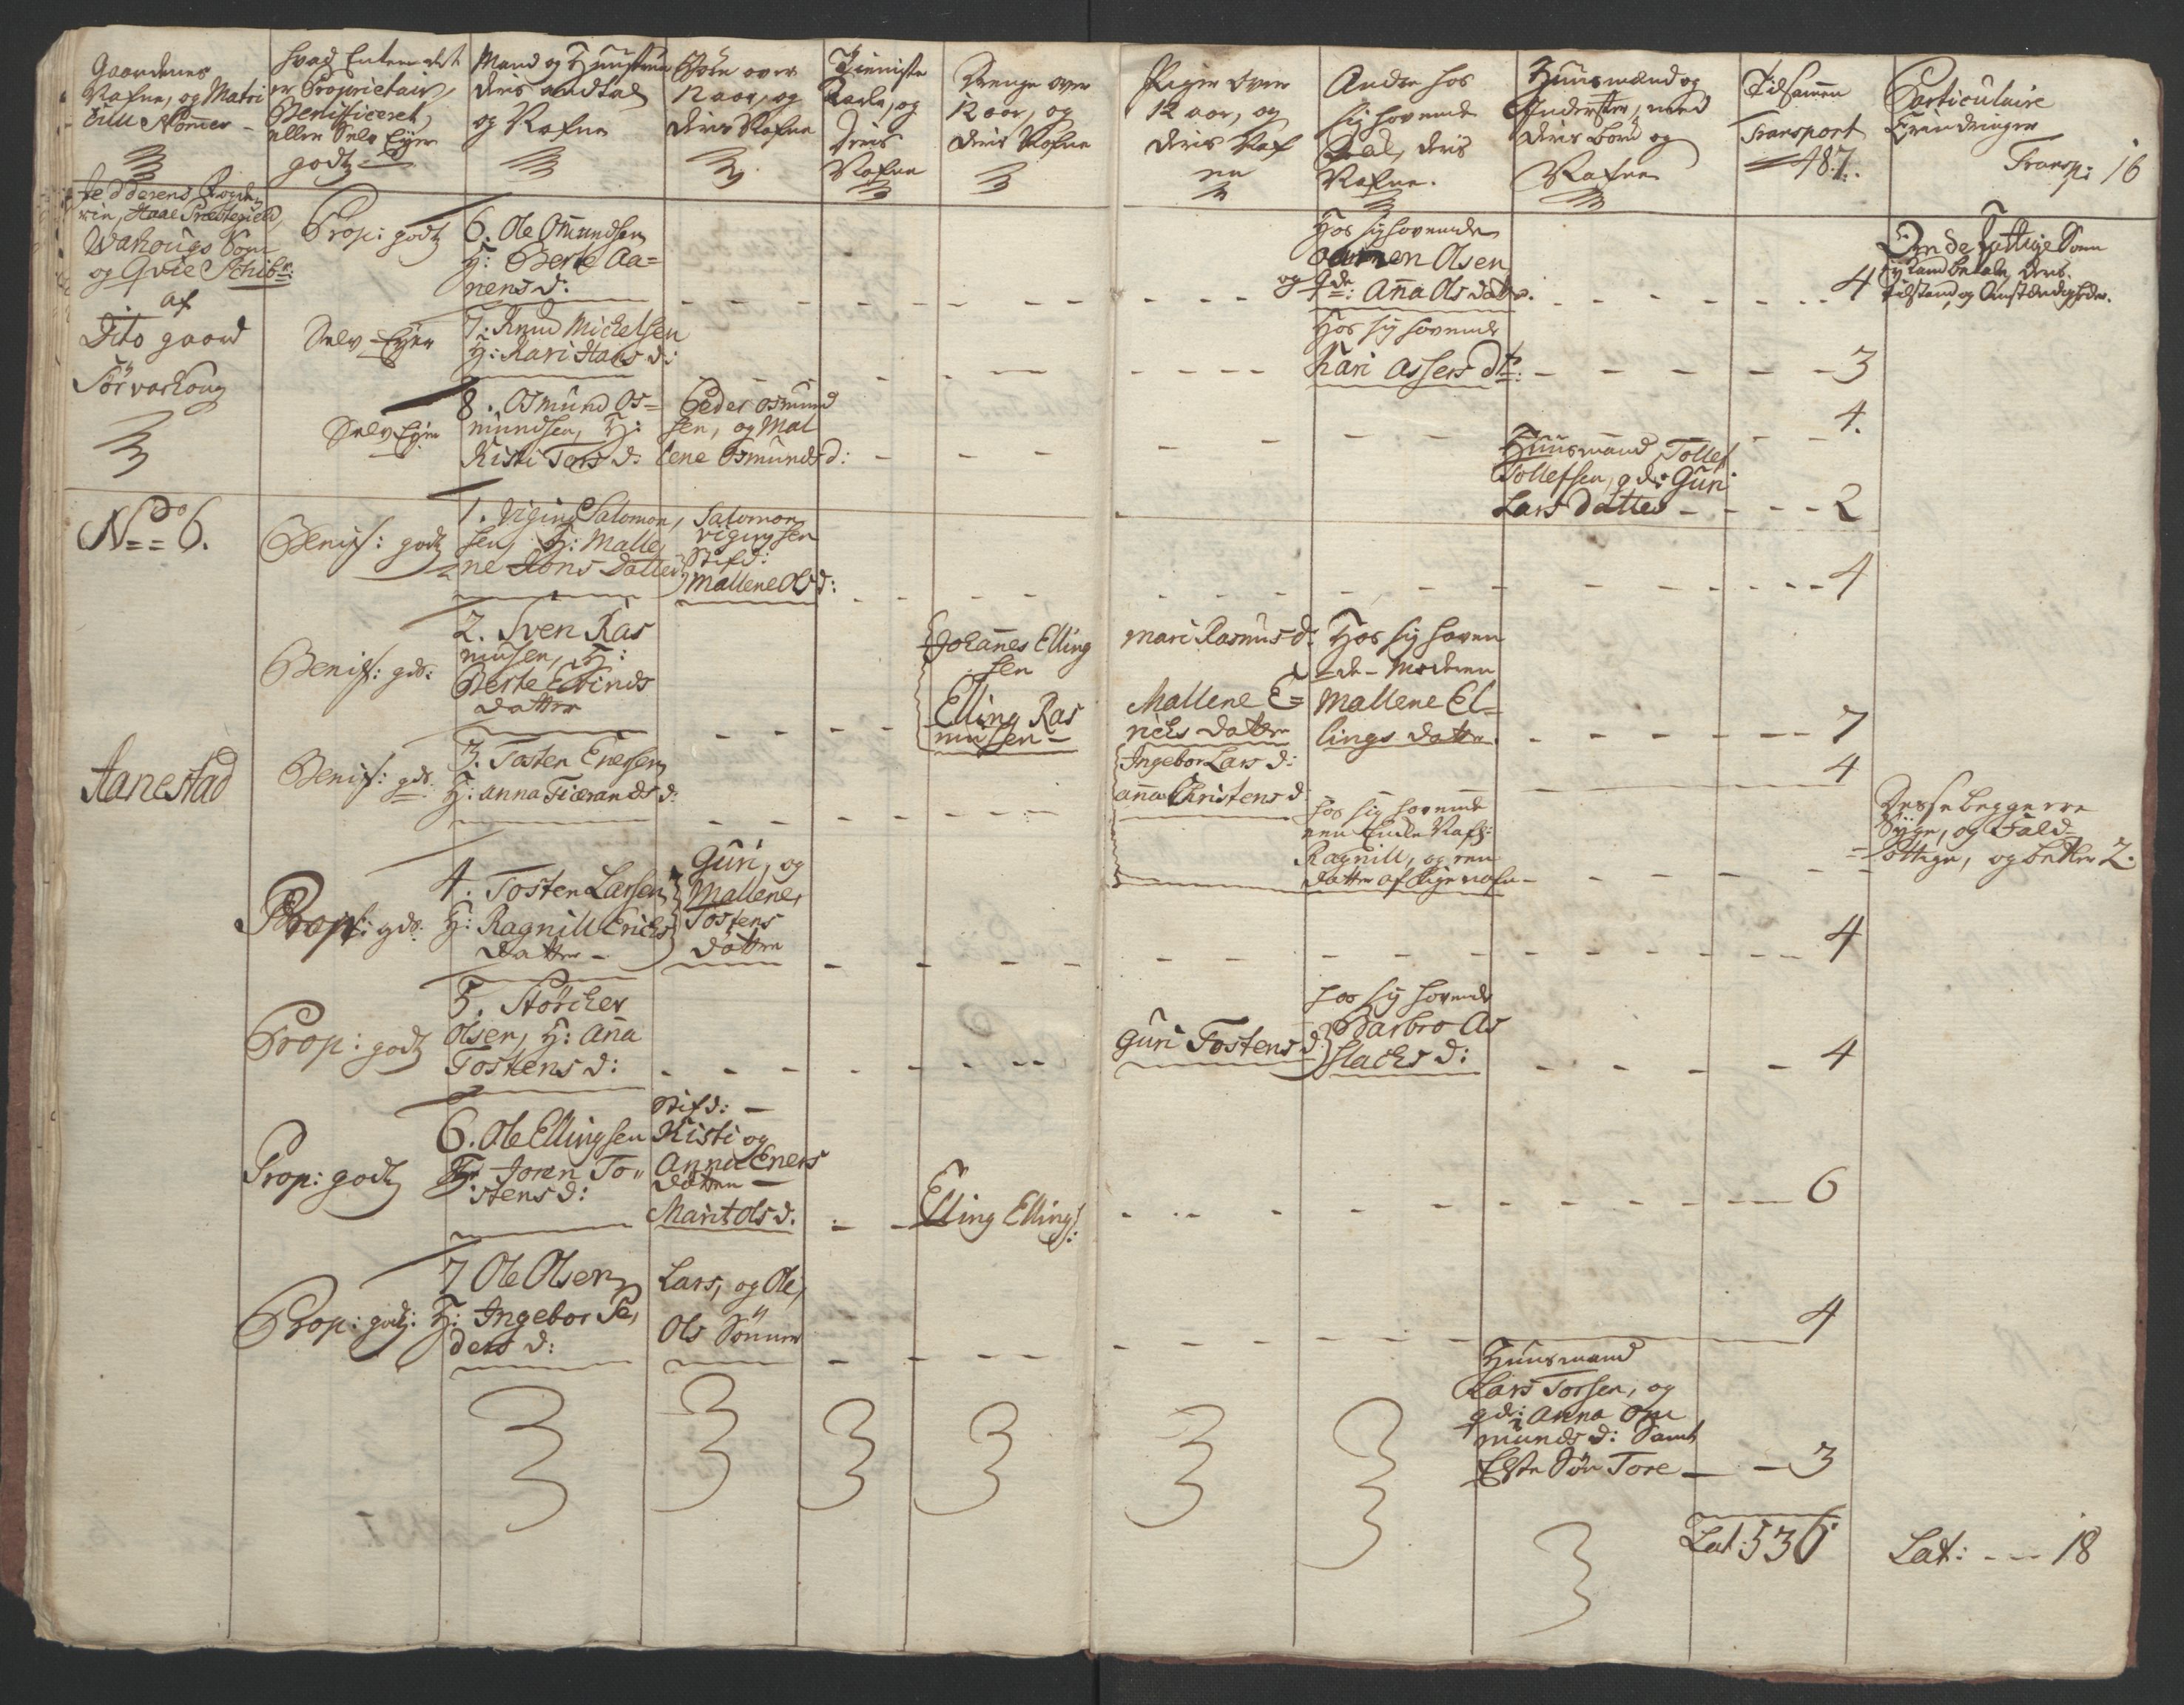 Gaardenes
Nafne, og Matri
cul Nommer -
Hvad Enten det
er Proprietair,
Benificeret,
eller Selv Eyer
godtz
Mand og Hustrue
deris andtal
og Nafne
Børn over
12 aar, og
deris Nafne
Tieniste
Karle, og
deris
Nafne
Drenge over
12 aar, og
deris Nafne
Piger over
12 aar, og
deris Naf
ne
Andre hos
sig havende
deris
Nafne.
Huusmænd og
Inderster, med
deris børn og
Nafne
Tilsammen
Transport
487.
Particulaire
Erindringer
Transp: 16
Jedderens
Haae Præstegield,
Warhougs Sogn
og Qvie Schibr:
af
Dito gaard
Sørvarhoug
Prop: godtz
6. Ole Omundsen
H: Berte Aa=
nens d:
Hos sig havende
Olsen
og qde: Anna Ols datter.
4
Om de fattige
deris
tilstand og Omstændigheder.
Selv Eyer
7. Knud Michelsen
H: Kari Hans d:
Hos sig havende
Kari Assers dtr:
3
Selv Eyer
8. Osmund Os=
mundsen, H:
Kisti Tors d:
Peder Osmund
sen, og Mal
lene Osmunds d:
4.
Huusmand Tollef
Tollefsen, qde: Guri
Lars datter
2
No 6.
Benif: godtz
1. Viging Salomon,
sen, H: Malle,
ne Hons datter
Salomon
Vigingsen
Stifd:
Mallene Ols d:
4
Benif: gds:
2. Sven Ras
musen, H:
Berte Evinds
datter
Johannes Elling
sen
Elling Ras
musen
Mari Rasmus d:
Mallene E=
richs datter
Hos sig haven
de - Moderen
Mallene El=
lings datter.
7
Aanestad
Benif: gds:
3. Tosten Enersen
H: Anna Tiærands d:
Ingebor Lars d:
Anna Christens d
4
hos sig havende
een Enke Nafl:
Ragnill, og een
datter af Lige nafn
Desse begge ere
Syge, og Fald=
fattige, og betler 2.
Prop: gds:
4. Tosten Larsen
H: Ragnill Erichs
datter
Guri, og
Mallene,
Tostens
døttre
4
Prop: godtz
5. Størcker
Olsen, H: Anna
Tostens d:
Guri Tostens d:
hos sig havende
Barbro As
slachs d:
4
Prop: godtz
6. Ole Ellingsen
H: Joren To=
stens d:
Stifd:
Kisti og
Anna Eners
døttre
Marit Ols d.
Elling Ellings:
6
Prop: godtz:
7 Ole Olsen
H: Ingebor Pe,
ders d:
Lars, og Ole,
Ols Sønner
4
Huusmand
Lars Torsen, og
qde: Anna Om
munds d: Samt
Elste Søn Tore
3
Lat: 536
Lat: 18